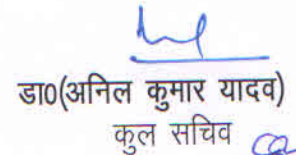 डा0(अनिल कुमार यादव)
कुल सचिव